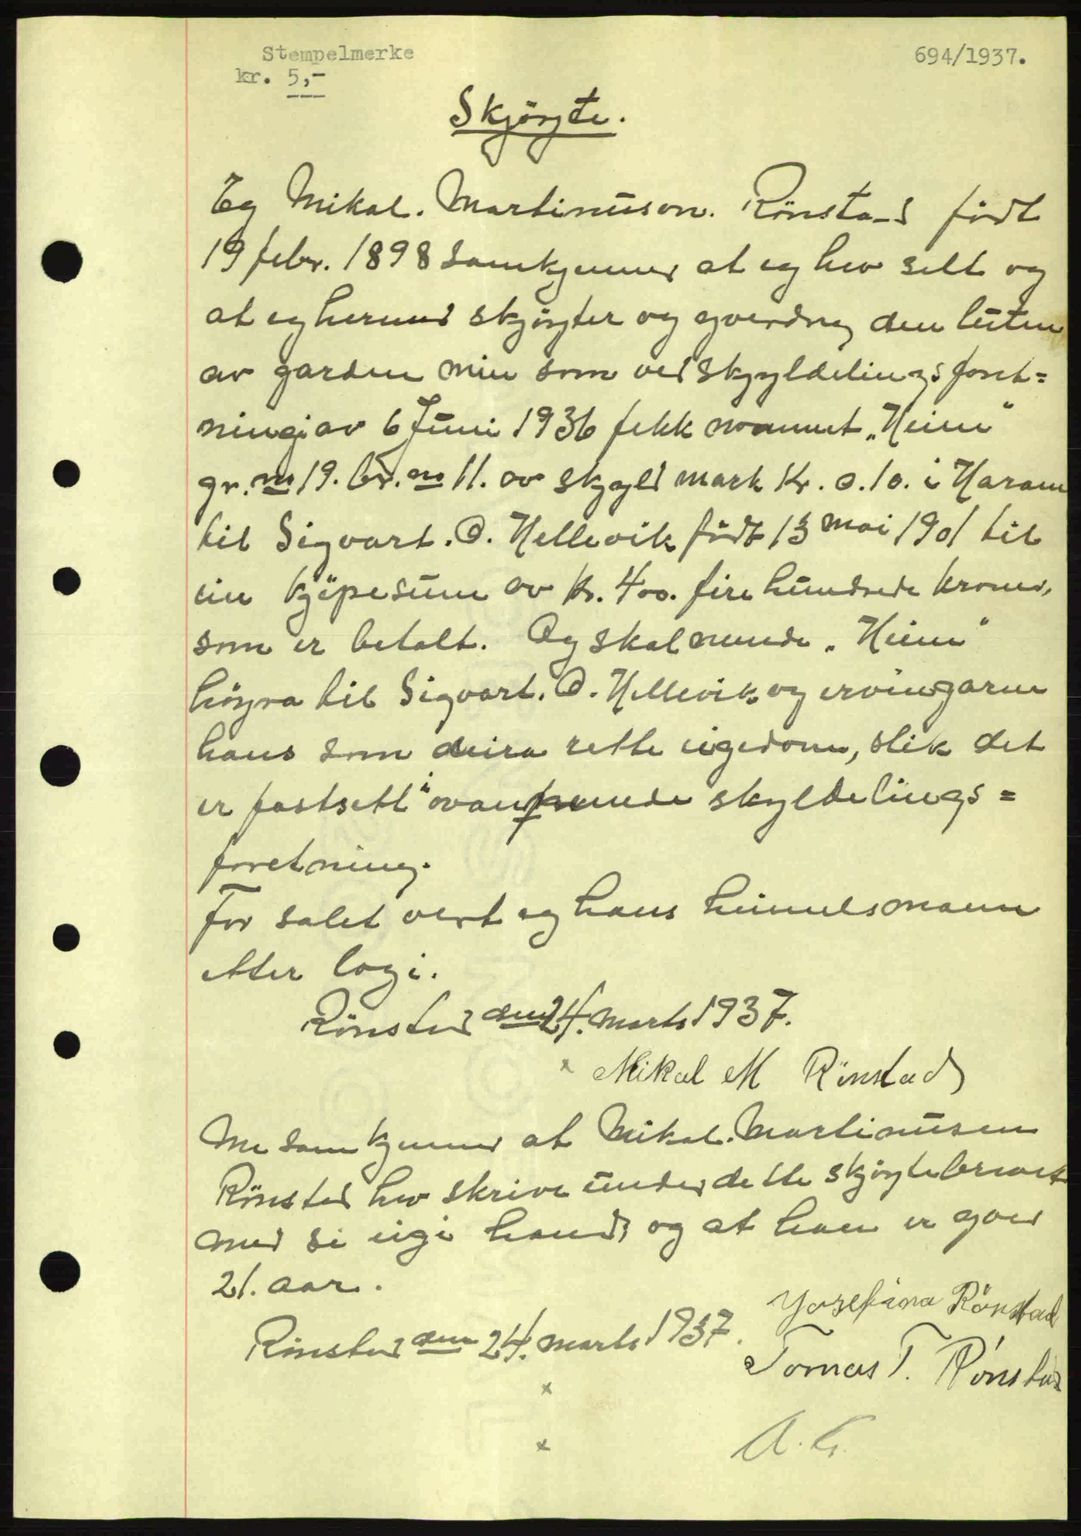 Stempelmerke
kr. 5,-
694/1937.
Skjöyte.
Eg Mikal. Martinuson. Rönstad födt
19 febr. 1898 samkjenner at eg hev selt og
at eg hermed skjöyter og yverdreg den luten
av garden min som ved skyyldelingsforet=
ningi av 6 Juni 1936 fekk namnet „Heim"
gr. no 19. br. no 11. av skyyld mark Kr. 0.10. i Haram
til Sigvart. O. Hellevik födt 13 mai 1901 til
ein kjöpesum av kr. 400. fire hundrede kroner,
som er betalt. Og skal nemnde „Heim"
höyra til Sigvart. O. Hellevik og ervingarne
hans som deira rette eigedom, slik det
er fastsett i ovannemnde skyldelings=
foretning.
For salet vert eg hans heimelsmann
etter logi.
Rönstad den 24. marts 1937.
× Mikal M Rönstad
Me samkjenner at Mikal. Martinusen
Rönstad hev skrive under dette skjöytebrevet
med si eigi hand, og at han er yver
21. aar.
Josefina Rönstad
Rönstad den 24. marts 1937.
Tomas T. Rönstad
×
×